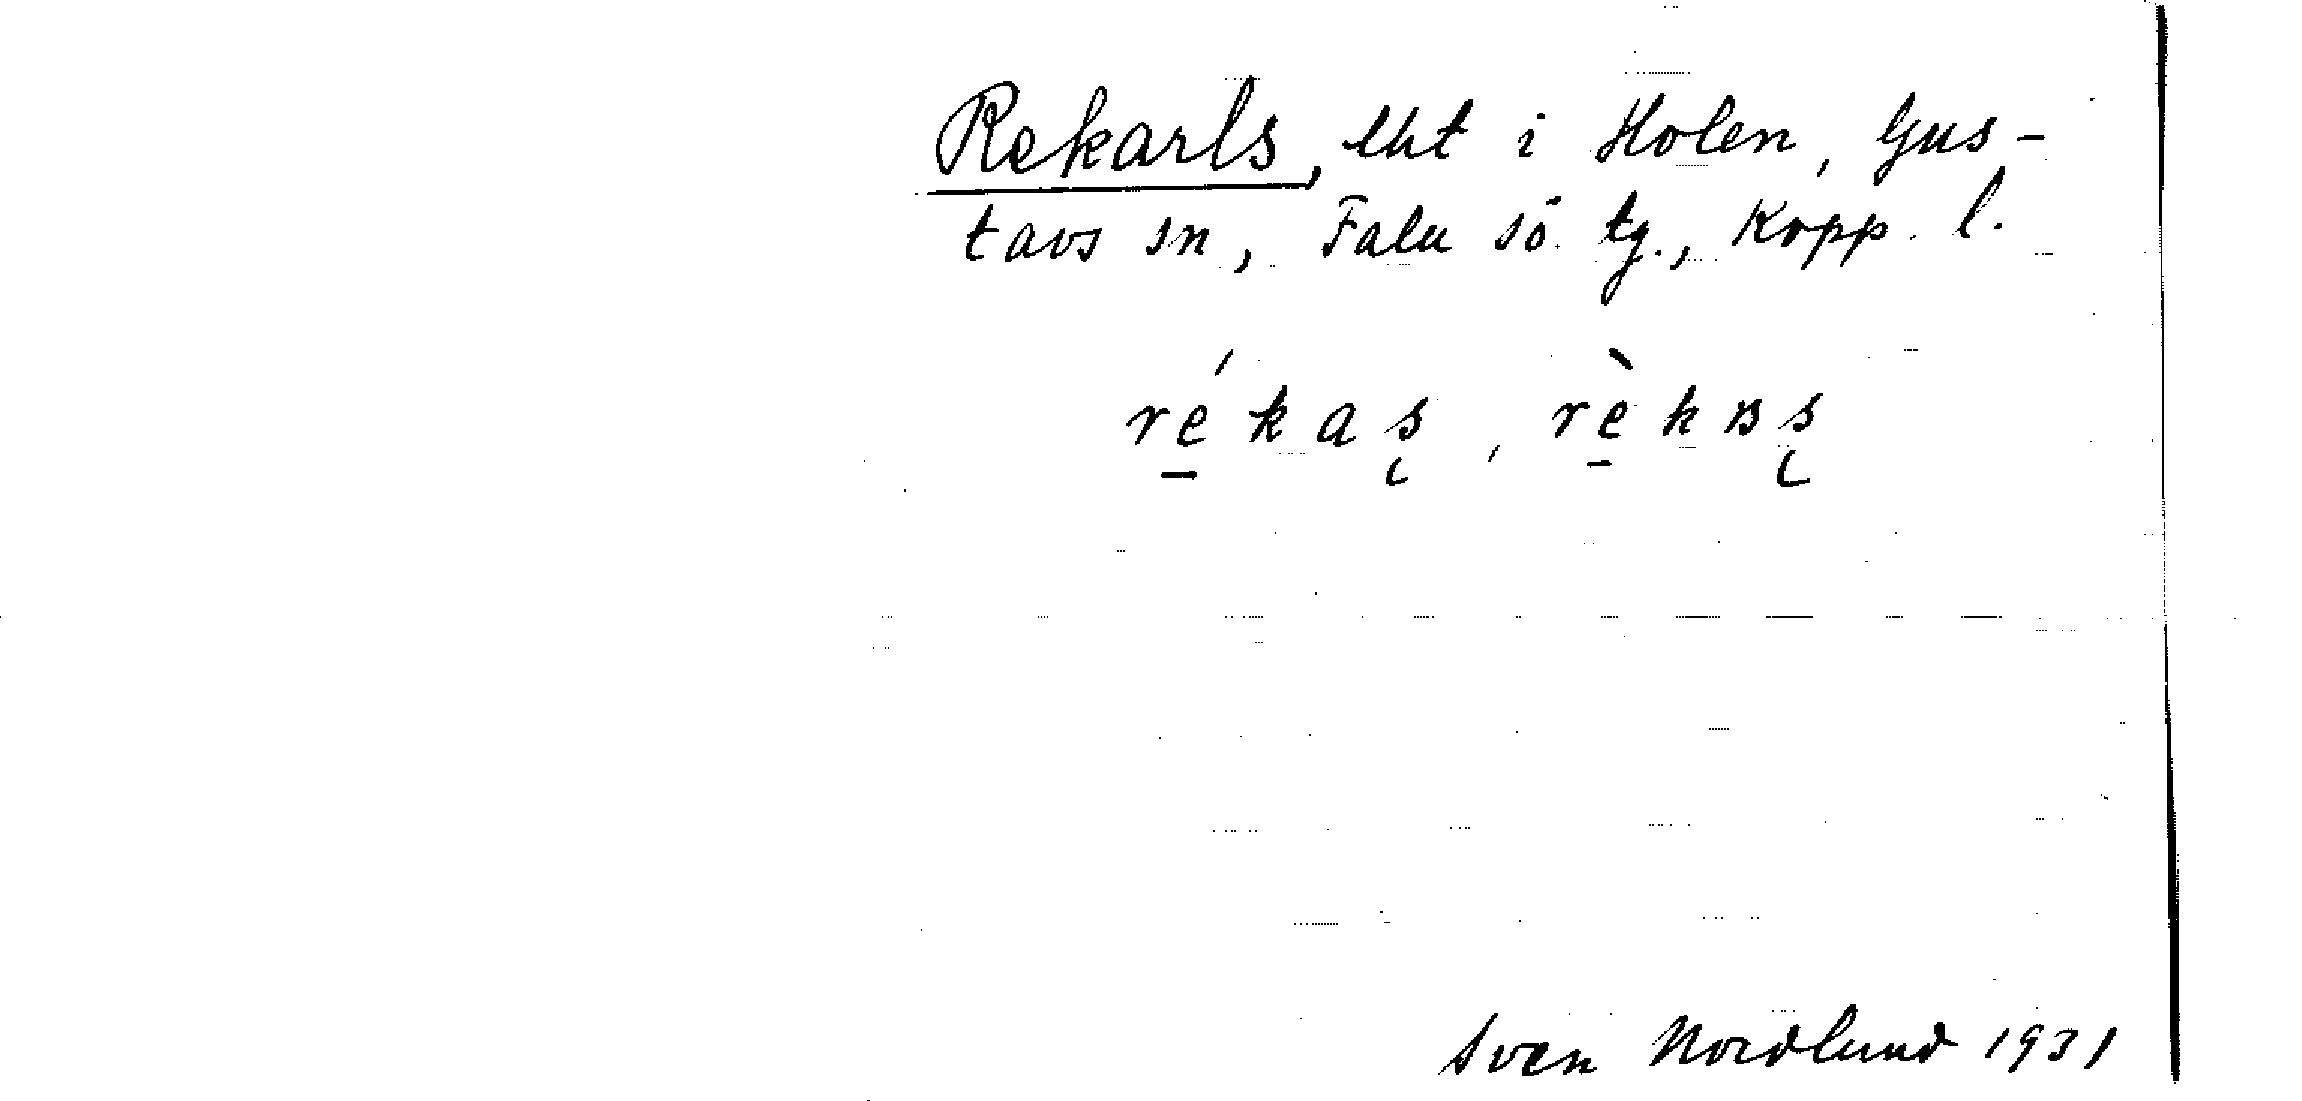 Rekarls, lht i Holen, Gus-
tavs sn, Falu sö tg., Kopp. l.
ré̱kaş, rè̱kʙş
Sven Nordlund 1931